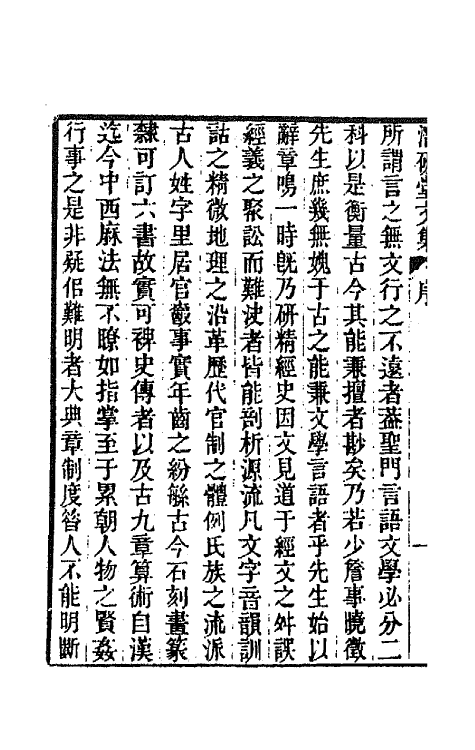 潛研堂文集 序 一
所謂言之無文行之不遠者葢聖門言語文學必分二
科以是衡量古今其能兼擅者尟矣乃若少詹事曉徵
先生庶幾無媿于古之能兼文學言語者乎先生始以
辭章鳴一時旣乃研精經史因文見道于經文之舛誤
經義之聚訟而難決者皆能剖析源流凡文字音韻訓
詁之精微地理之沿革歷代官制之體例氏族之流派
古人姓字里居官爵事實年齒之紛繇古今石刻畫篆
隸可訂六書故實可裨史傳者以及古九章算術自漢
迄今中西麻法無不瞭如指掌至于累朝人物之賢姦
行事之是非疑佀難明者大典章制度昔人不能明斷